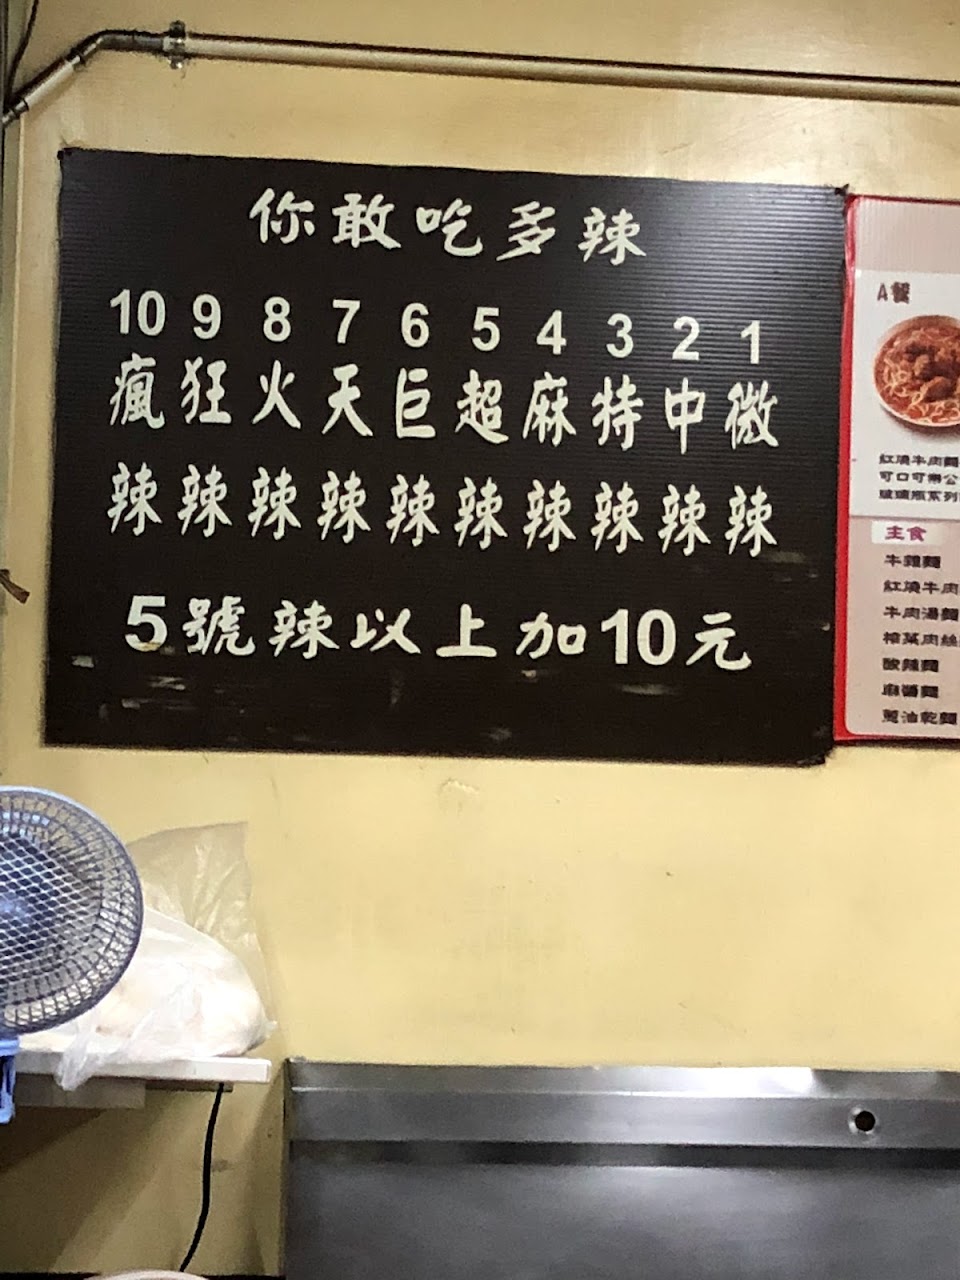 你敢吃多辣
10 9 8 7 6 5 4 3 2 1
瘋 狂 火 天 巨 超 麻 特 中 微
辣 辣 辣 辣 辣 辣 辣 辣 辣 辣
5號辣以上加10元
A餐
紅燒牛肉麵
可口可樂公
玻璃瓶系列
主食
牛雜麵
紅燒牛肉
牛肉湯麵
榨菜肉絲
酸辣麵
麻醬麵
蔥油乾麵